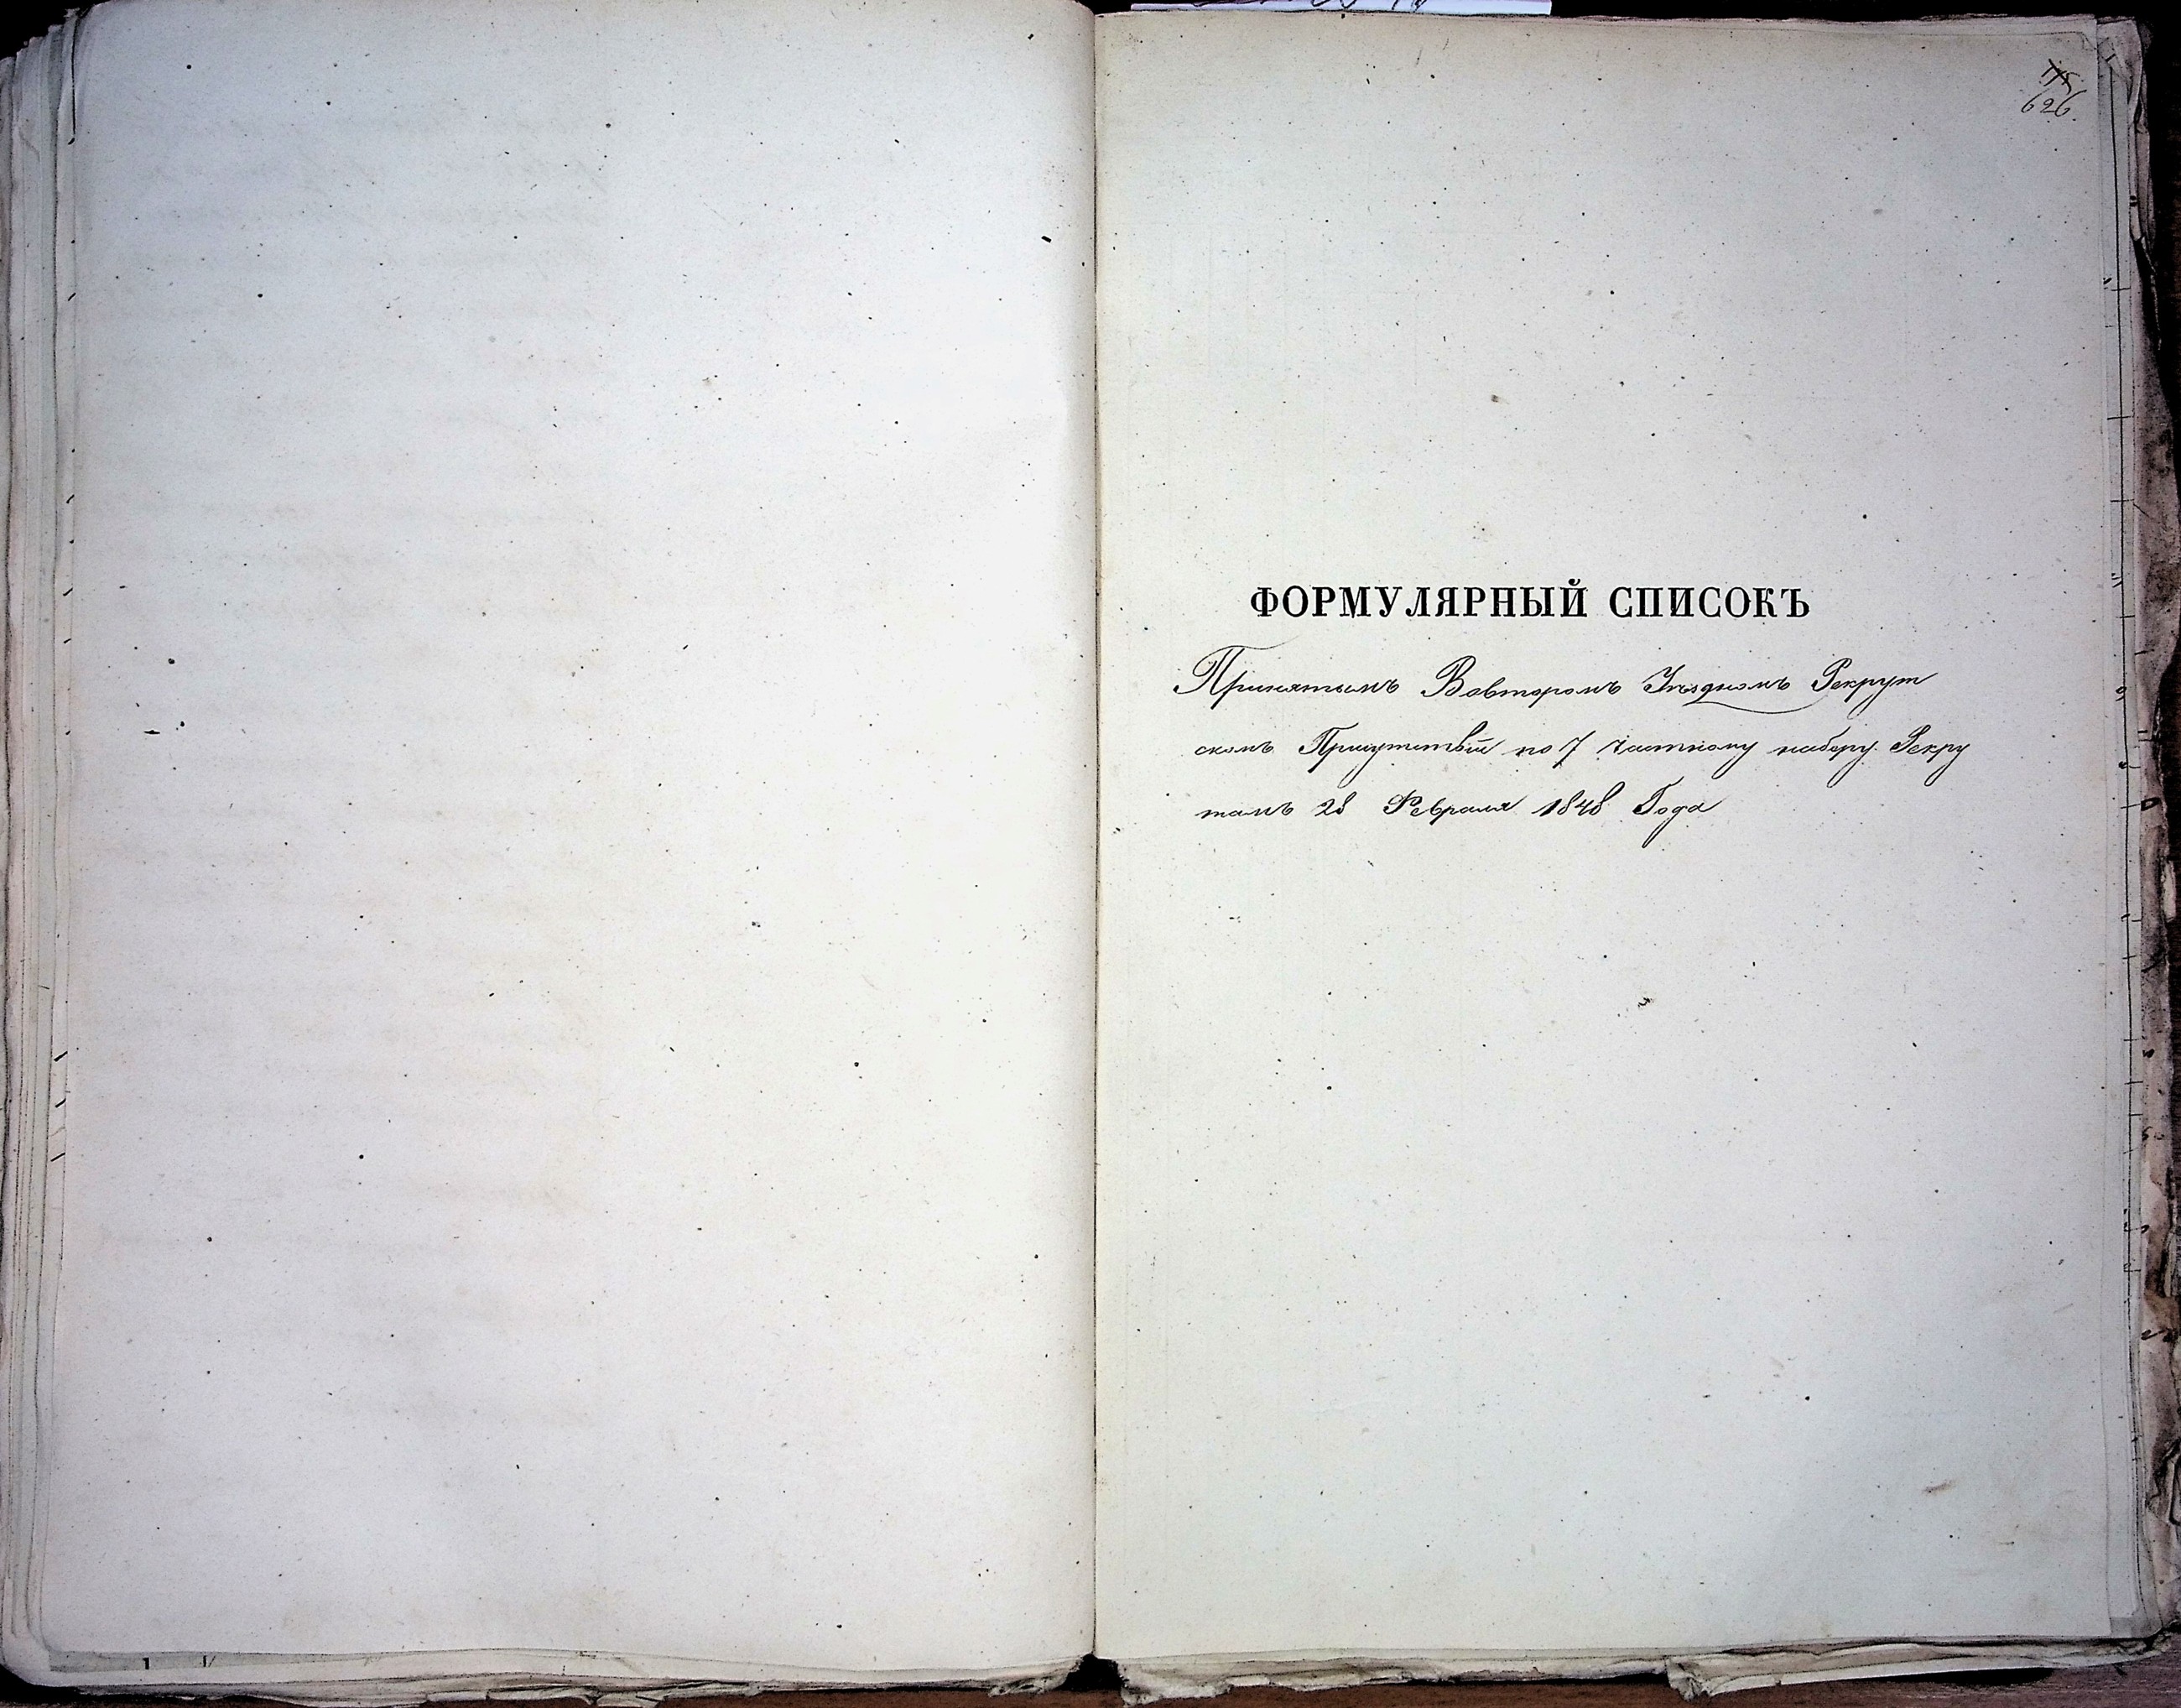 626.
ФОРМУЛЯРНЫЙ СПИСОКЪ
Принятымъ Вовторомъ Уѣздномъ Рекрут
скомъ Присутствіи по 7 частному набору Рекру
тамъ 28 Февраля 1848 Года